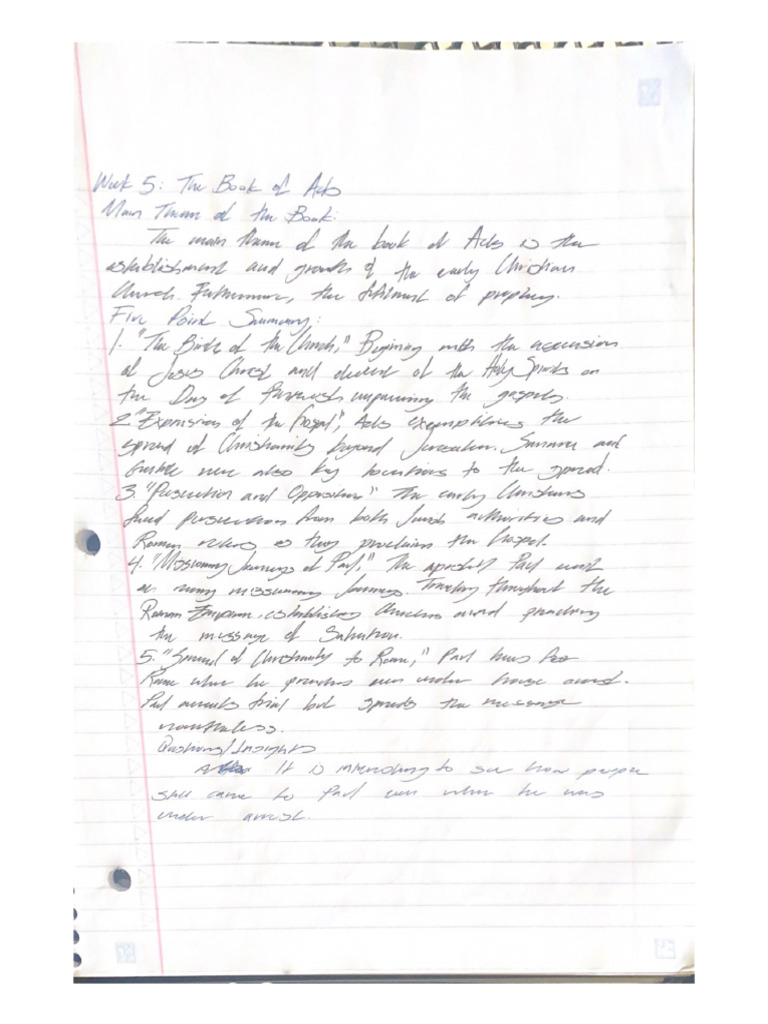 Week 5: The Book of Acts
Main Theme of the Book:
The main theme of the book of Acts is the
establishment and growth of the early Christian
Church. Futhermore, the fulfilment of prophecy.
Five Point Summary:
1. "The Birth of the Church," Begining with the ascension
of Jesus Christ and decent of the Holy Spirits on
the Day of the gospels.
2. "Expansion of the Gospel", Acts exemplifies the
spread of Christianity beyond Jerusalem. Samaria and
were also key locations to the spread.
3. "Persecution and Opposition" The early Christians
faced persecution from both Jewish authorities and
Roman rulers as they proclaim the Gospel.
4. "Missionary Journeys of Paul," The apostle Paul went
on many missionary Journeys. Traveling throughout the
Roman establishing churches and preaching
the message of Salvation.
5. "Spread of Christianity to Rome," Paul
Rome where he preaches even under house arrest.
Paul awaits trial but spreads the message
nonetheless.
Questions/Insights
It is interesting to see how people
still came to Paul even when he was
under arrest.